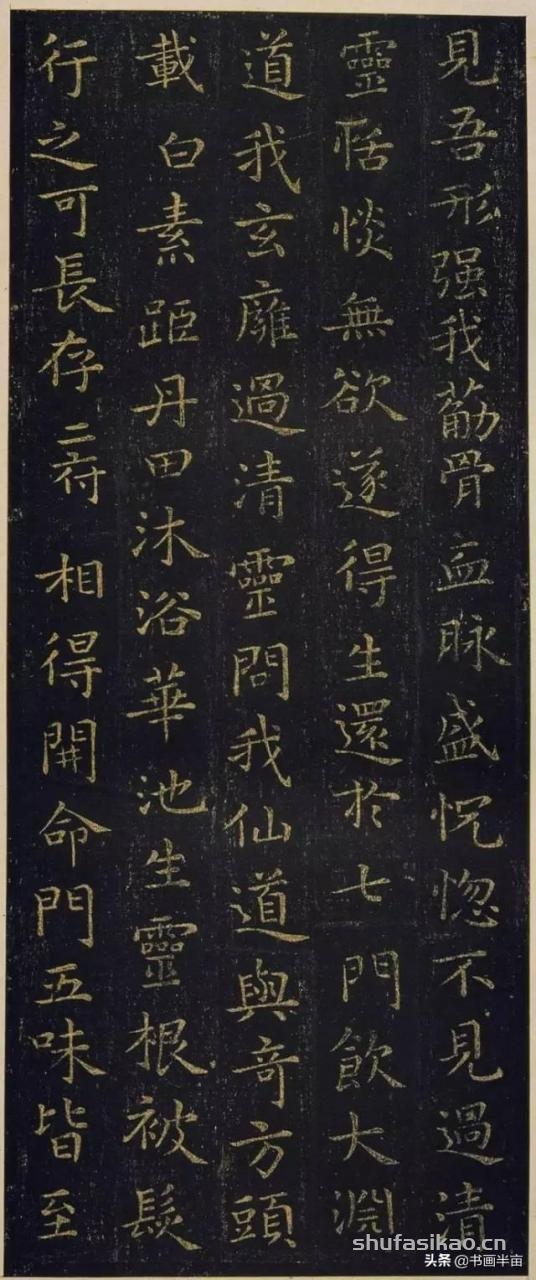 見吾形强我筋骨血脉盛怳惚不見過清
靈恬惔無欲遂得生還於七門飲大淵
道我玄廱過清靈問我仙道與奇方頭
載白素距丹田沐浴華池生靈根被髮
行之可長存二府相得開命門五味皆至
shufasikao.cn
头条 @书画半亩